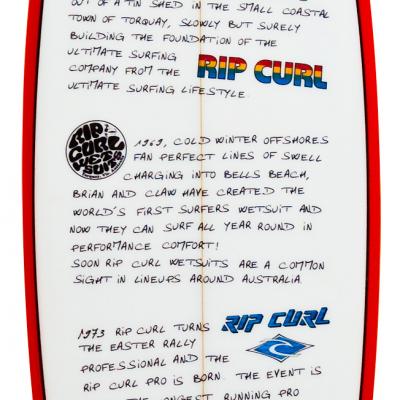 OUT OF A TIN SHED IN THE SMALL COASTAL
TOWN OF TORQUAY, SLOWLY BUT SURELY
BUILDING THE FOUNDATION OF THE
ULTIMATE SURFING
COMPANY FROM THE
ULTIMATE SURFING LIFESTYLE.
RIP CURL
RIP CURL WETSUITS
1969, COLD WINTER OFFSHORES
FAN PERFECT LINES OF SWELL
CHARGING INTO BELLS BEACH,
BRIAN AND CLAW HAVE CREATED THE
WORLD'S FIRST SURFERS WETSUIT AND
NOW THEY CAN SURF ALL YEAR ROUND IN
PERFORMANCE COMFORT!
SOON RIP CURL WETSUITS ARE A COMMON
SIGHT IN LINEUPS AROUND AUSTRALIA.
RIP CURL
1973 RIP CURL TURNS
THE EASTER RALLY
PROFESSIONAL AND THE
RIP CURL PRO IS BORN. THE EVENT IS
LONGEST RUNNING PRO